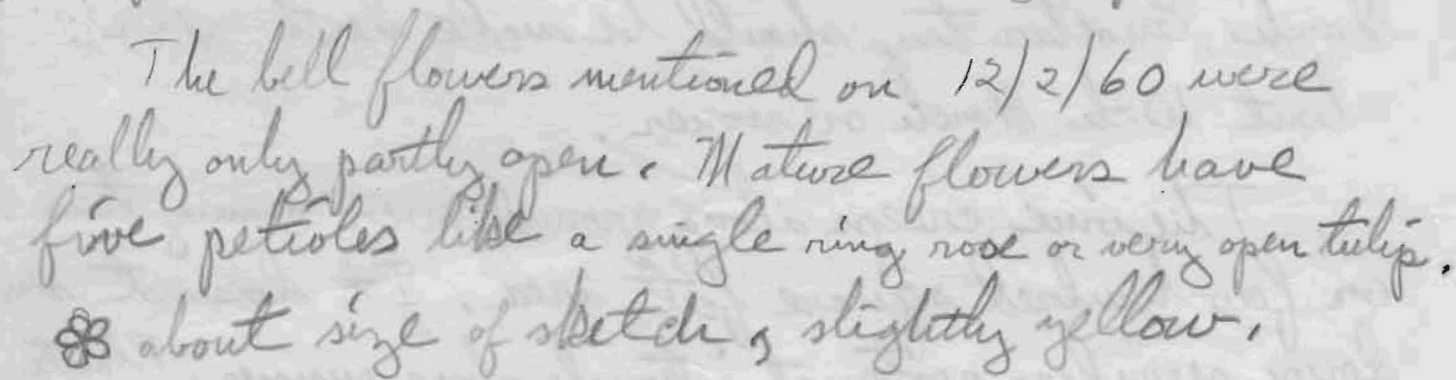 The bell flowers mentioned on 12/2/60 were
really only partly open. Mature flowers have
five petioles like a single ring rose or very open tulip.
about size of sketch, slightly yellow.